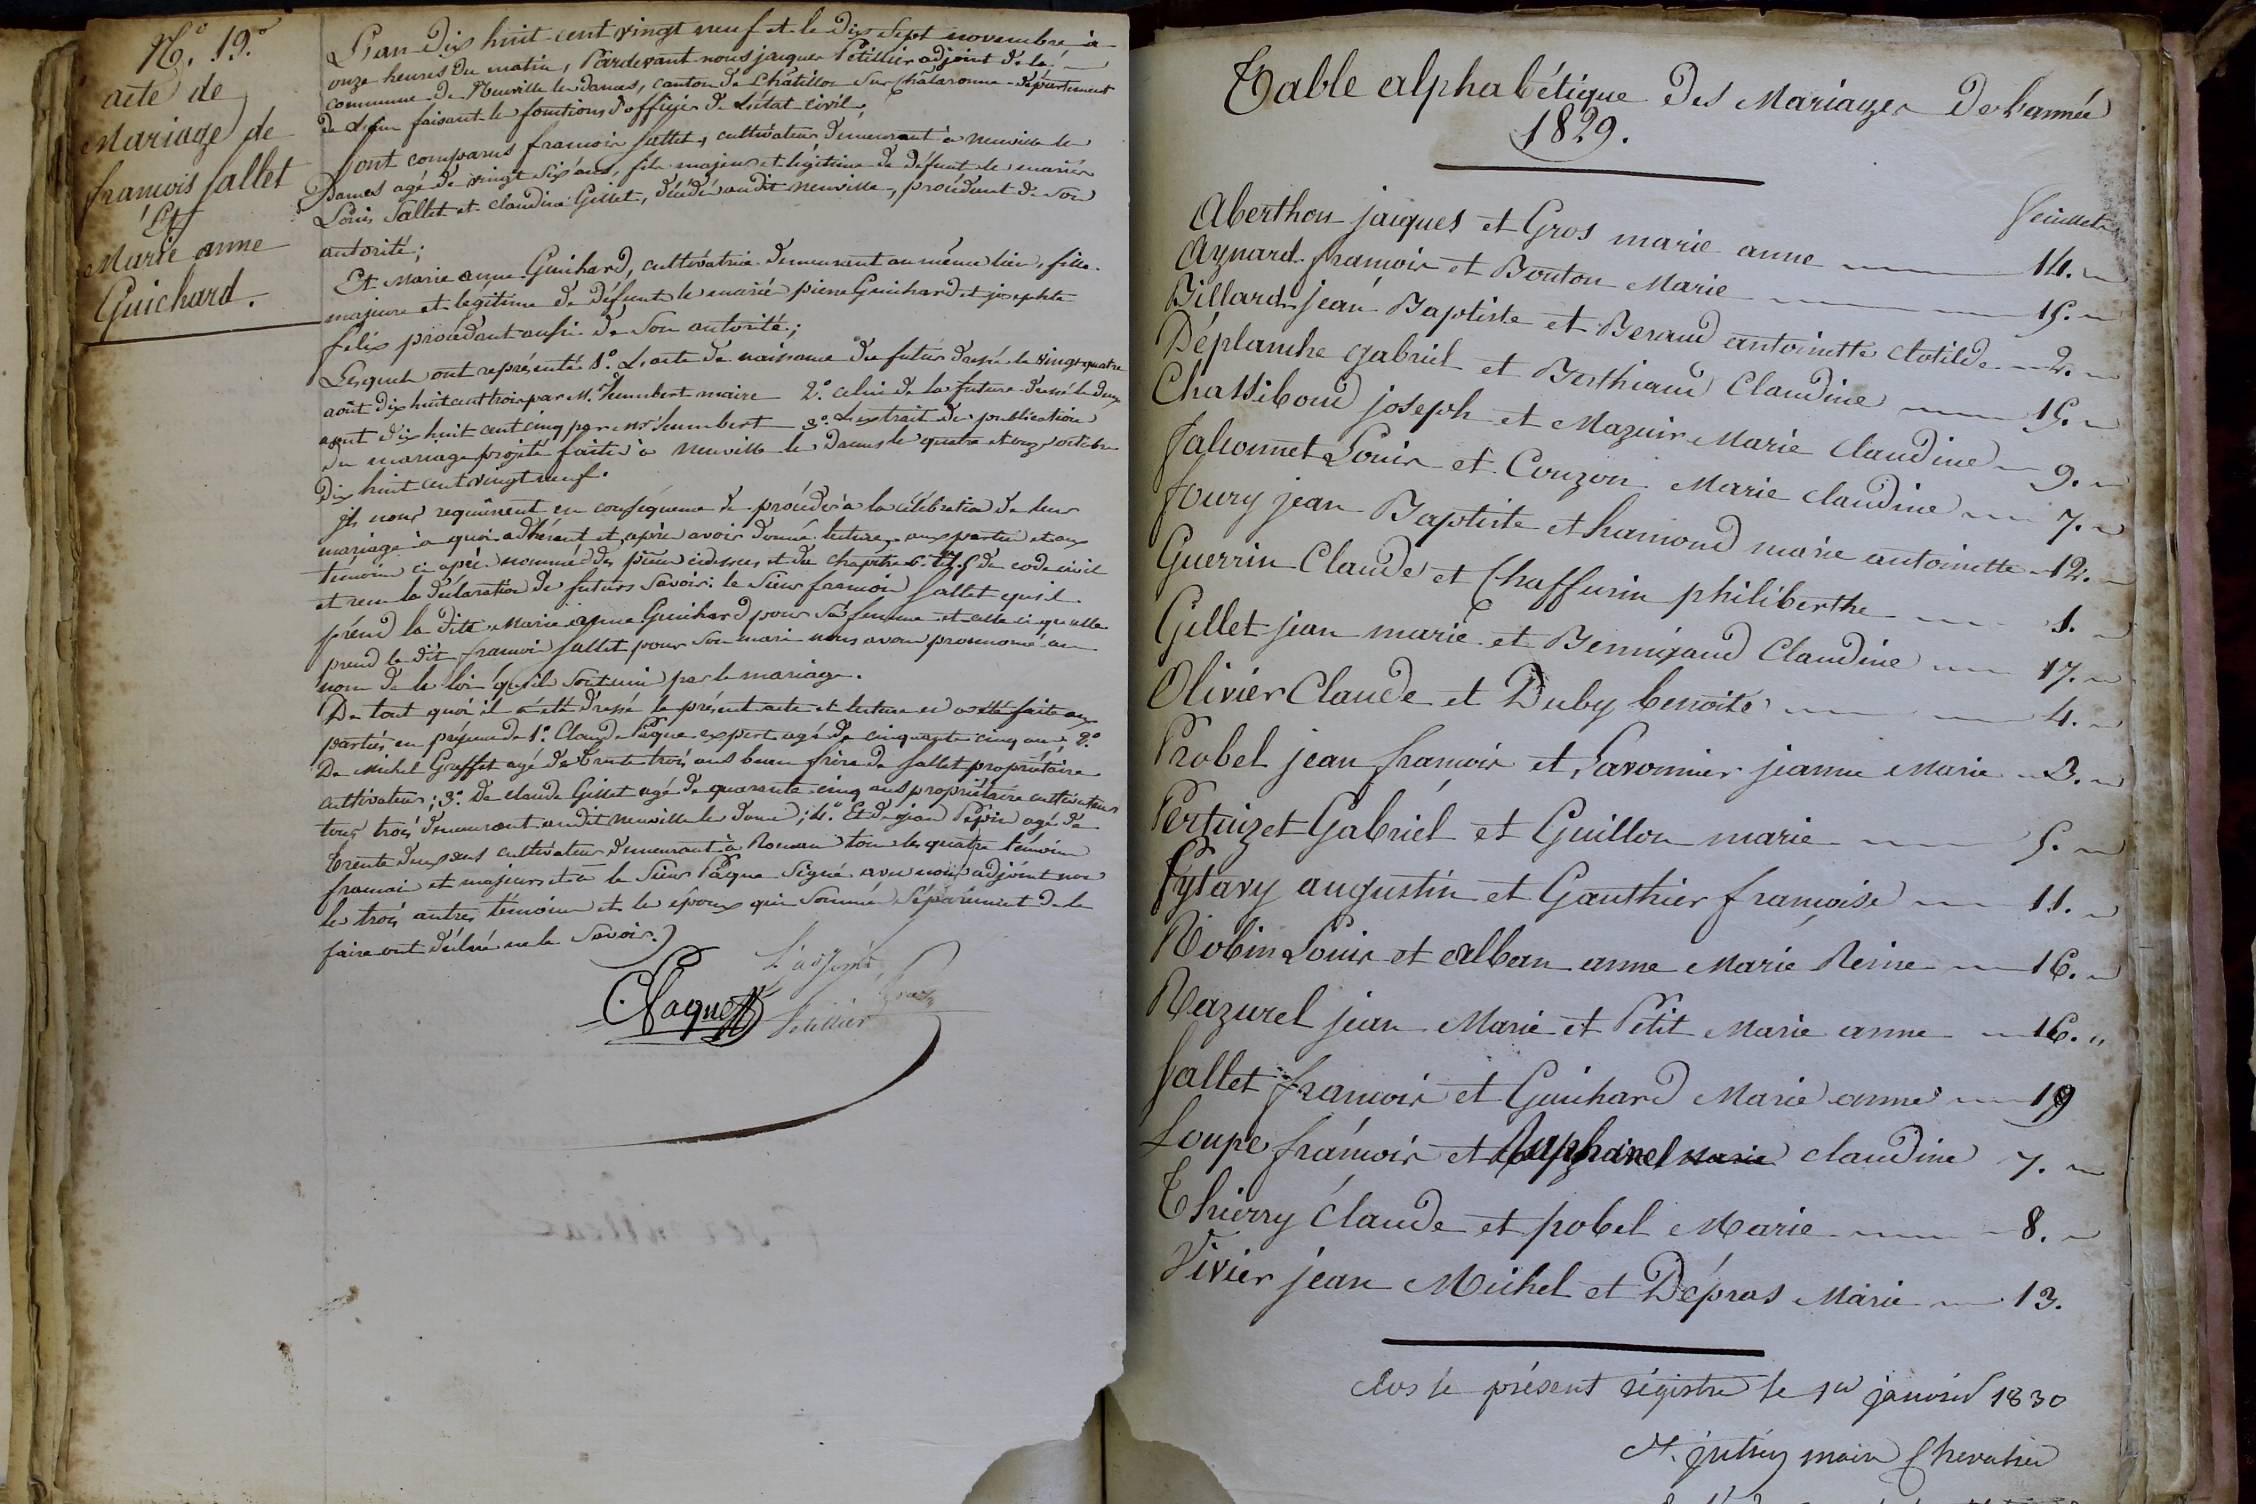 No. 19.
acte de
Mariage de
françois Sallet
Et
Marie anne
Guichard.
L'an Dix huit cent vingt neuf et le Dix Sept novembre à
onze heures du matin, Pardevant nous jacques Petillier adjoint de la
commune de Neuville les dames, canton de Châtillon Sur Chalaronne département
de L'ain faisant les fonctions d'officier de L'état civil,
Sont comparus françois Sallet, cultivateur demeurant à neuville les
Dames agé de vingt Six ans, fils majeur et légitime de défunt le mariés
Louis Sallet et claudine Gillet, décédé audit neuville, procédant de Son
autorité;
Et Marie anne Guichard, cultivatrice demeurant au même lieu, fille
majeure et legitime de défunt le marié pierre Guichard et josephte
felix procédant aussi de Son autorité;
Lesquels ont représenté 1o. L'acte de naissance du futur dressé le vingt quatre
août dix huit cent trois par M. humbert maire 2o. celui de la future dressé le deux
août dix huit cent cinq par mr. humbert 3o. L'extrait des publications
du mariage projeté faites à neuville les Dames le quatre et onze octobre
Dix huit cent vingt neuf.
ils nous requièrent en conséquence de procéder à la célébration de leur
mariage à quoi adhérant et après avoir donné lecture aux parties et aux
témoins ci après nommés des pièces cidessus et du chapitre 6. tit. 5 du code civil
et reçu la déclaration des futurs Savoir: le Sieur françois Sallet qu'il
prend la dite Marie anne Guichard pour Sa femme et celle ci qu'elle
prend le dit françois Sallet pour Son mari nous avons prononcé au
nom de la loi qu'ils Sont unis par le mariage.
De tout quoi il a été dressé le présent acte et lecture en a été faite aux
parties en présence de 1o. Claude Paque expert agé de cinquante cinq ans 2o.
De Michel Greffet agé de trente trois ans beau frère de Sallet propriétaire
cultivateur; 3o. De claude Gillet agé de quarante cinq ans propriétaire cultivateur
tous trois demeurant audit neuville les dames; 4o. Et de jean Pépin agé de
trente deux ans cultivateur demeurant à Romans tous les quatre témoins
français et majeurs et a le Sieur Pâque Signé avec nous adjoint non
les trois autres témoins et les époux qui Sommés Séparément de le
faire ont déclaré ne le Savoir.
CPaque L'adjoint
Petillier
Table alphabétique des Mariages de l'année
1829.
feuillets
Aberthon jacques et Gros marie anne 14.
Aynard françois et Bouton Marie 15.
Billard jean Baptiste et Beraud antoinette clotilde 2.
Déplanche gabriel et Berthiaud Claudine 15.
Chassiboud joseph et Mazuir Marie Claudine 9.
falconnet Louis et Couzon Marie claudine 7.
foury jean Baptiste et hamond marie antoinette 12.
Guerrin Claude et Chaffurin philiberthe 1.
Gillet jean marie et Bennigaud Claudine 17.
Olivier Claude et Duby benoite 4.
Probel jean françois et Savonnier jeanne Marie 3.
Pertuizet Gabriel et Guillon marie 5.
Pytavy augustin et Gauthier françoise 11.
Robin Louis et alban anne Marie Reine 16.
Razurel jean Marie et Petit Marie anne 16. "
Sallet françois et Guichard Marie anne 19
Loupe françois et Rapharel Marie claudine 7.
Thierry Claude et pobel Marie 8.
Vivier jean Michel et Dépras Marie 13.
Clos le présent régistre le 1er janvier 1830